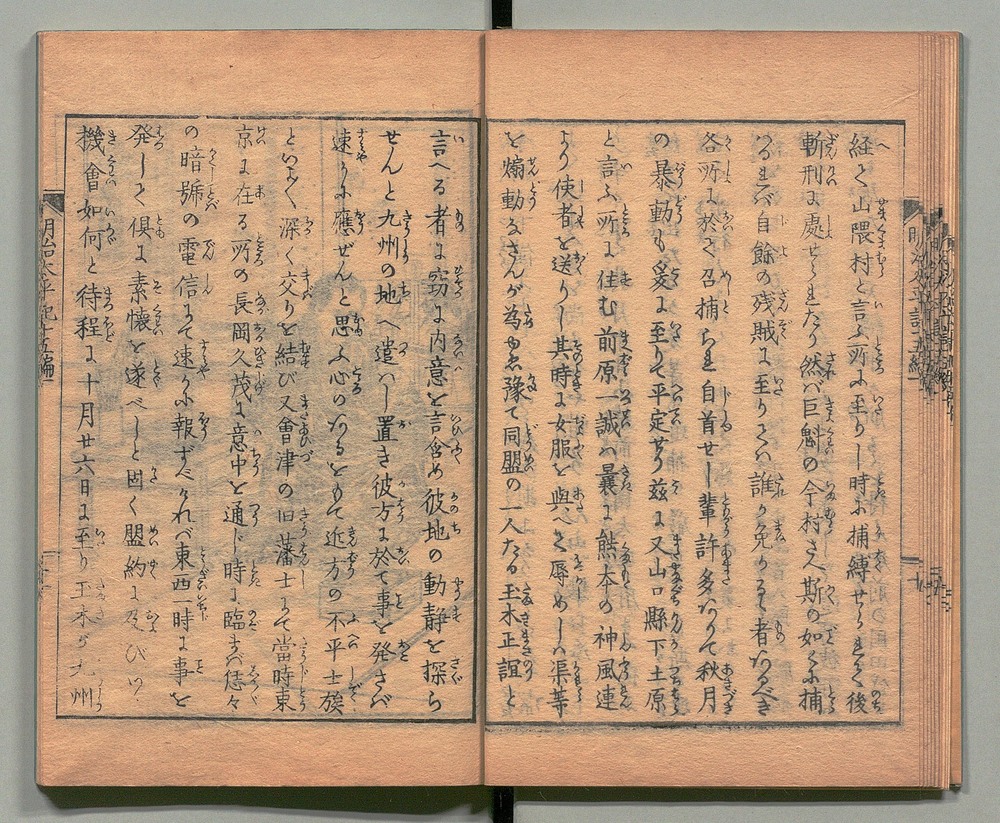 経て山隈村と言ふ所に至りし時に捕縛せられて後
斬刑に處せられたり然バ巨魁の今村さへ斯の如くに捕
つれバ自餘の残賊に至りてハ誰か免かるゝ者あるべき
各所に於て召捕られ自首せし輩許多ありて秋月
の暴動も爰に至りて平定せり茲に又山口縣下土原
と言ふ所に住む前原一誠ハ曩に熊本の神風連
より使者を送りし其時に女服を與へて辱めしハ渠等
を煽動なさんが為也豫て同盟の一人たる玉木正誼と
言へる者に窃に内意を言含め彼地の動静を探ら
せんと九州の地へ遣ハし置き彼方に於て事を発さバ
速かに應ぜんと思ふ心のあるをもて近方の不平士族
といよ〳〵深く交りを結び又會津の旧藩士にて當時東
京に在る所の長岡久茂に意中を通じ時に臨まバ恁々
の暗號の電信にて速かに報ずべけれバ東西一時に事を
発して倶に素懐を遂べしと固く盟約に及びつゝ
機會如何と待程に十月廿六日に至り玉木が九州
明治太平記十五編